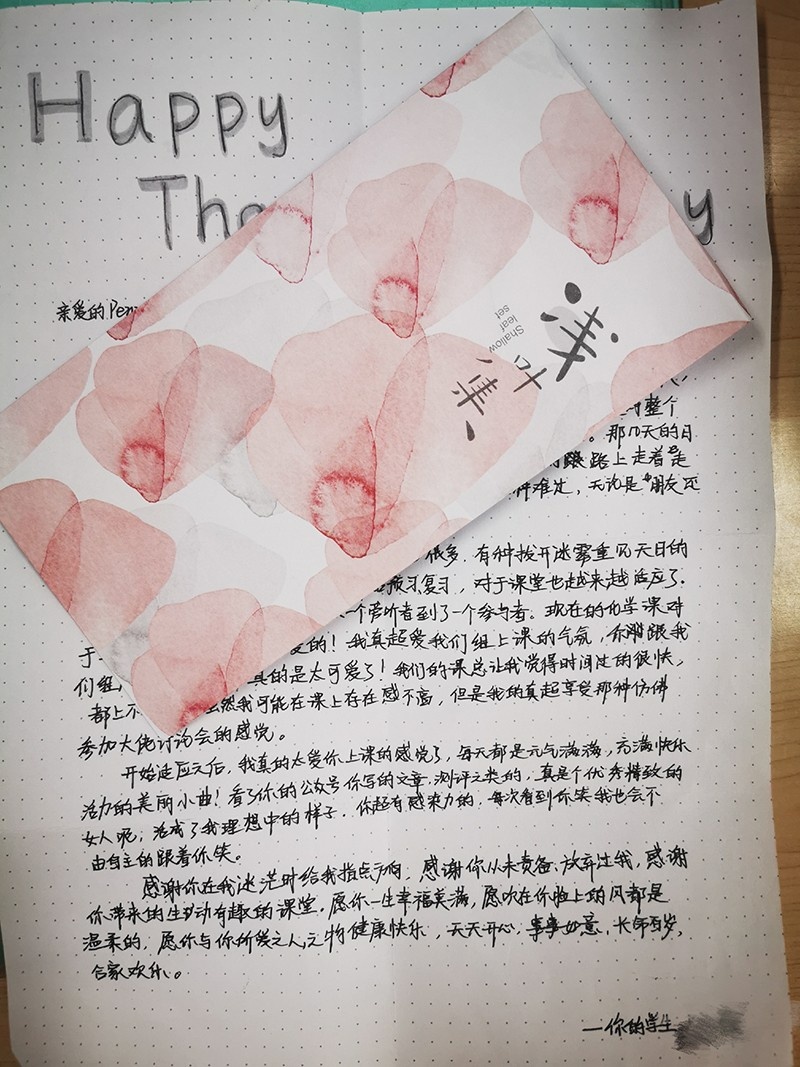 Happy
Tha y
亲爱的Pen
浅
叶
集
Shallow
leaf
set
整个
。那几天的日
路上走着走
种难过，无论是“朋友还
很多，有种拨开迷雾重见天日的
预习复习，对于课堂也越来越适应了。
一个旁听者到了一个参与者。现在的化学课对
于 爱的！我真超爱我们组上课的气氛，你 跟我
们组 真的是太可爱了！我们的课总让我觉得时间过的很快，
都上不 虽然我可能在课上存在感不高，但是我的真超享受那种仿佛
参加大佬讨论会的感觉。
开始适应之后，我真的太爱你上课的感觉了，每天都是元气满满，充满快乐
活力的美丽小曲！看了你的公众号你写的文章，测评之类的，真是个优秀精致的
女人呢；活成了我理想中的样子。你超有感染力的，每次看到你笑我也会不
由自主的跟着你笑。
感谢你在我迷茫时给我指点方向，感谢你从未责备、放弃过我，感谢
你带来的生动有趣的课堂。愿你一生幸福美满，愿吹在你脸上的风都是
温柔的，愿你与你所爱之人之物健康快乐，天天开心，事事如意，长命百岁，
合家欢乐。
—你的学生